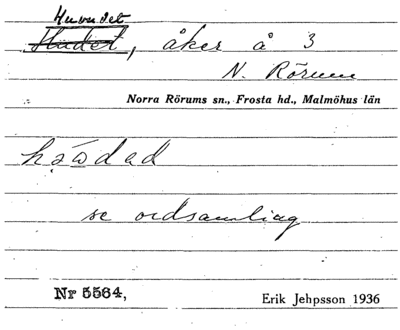 Huvudet
Hudet, åker å 3
N. Rörum
Norra Rörums sn., Frosta hd., Malmöhus län
se ordsamling
Nr 5564,
Erik Jehpsson 1936